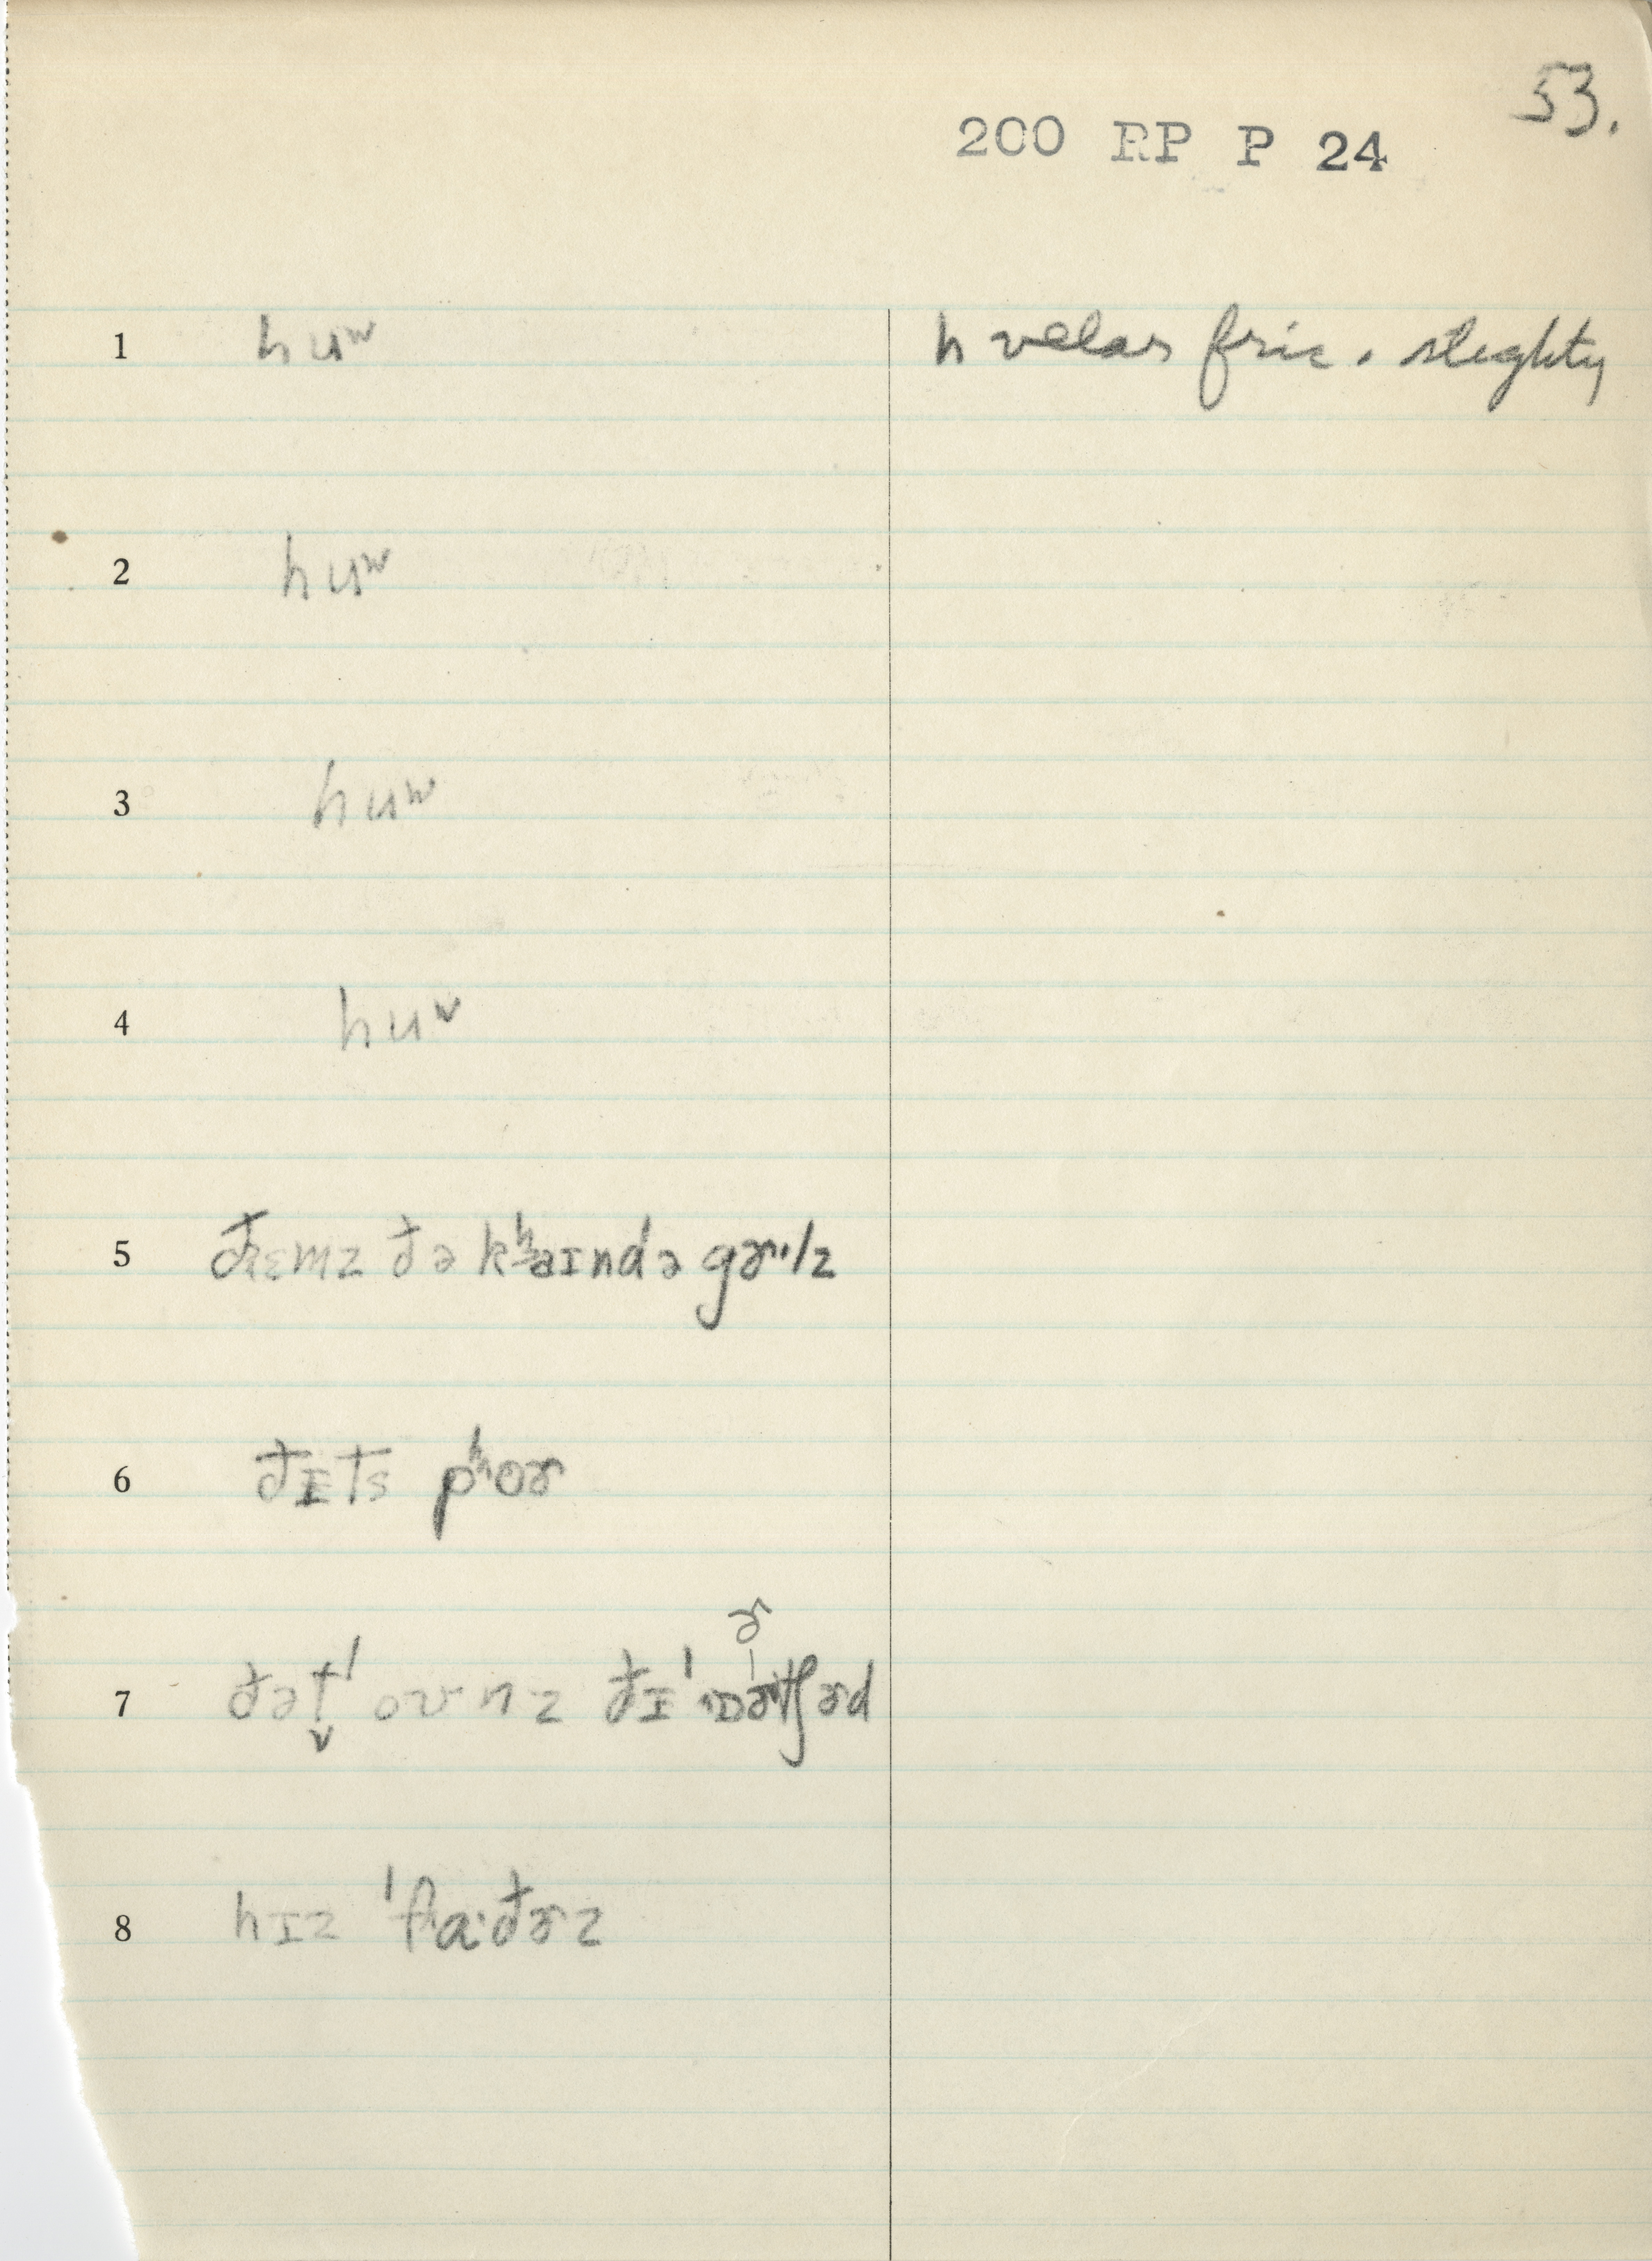 53.
200 RP P 24
1 huʷ h velar fric. slightly
2 huʷ
3 huʷ
4 huʷ
5 đɛmz đə kʰaɪndə gɚ·lz
6 đɪts pʰoɚ
ɚ
7 đət̬ˈ oʊnz đɪ ˈɒɚtʃɚd
8 hɪz ˈfɑ·đɚz